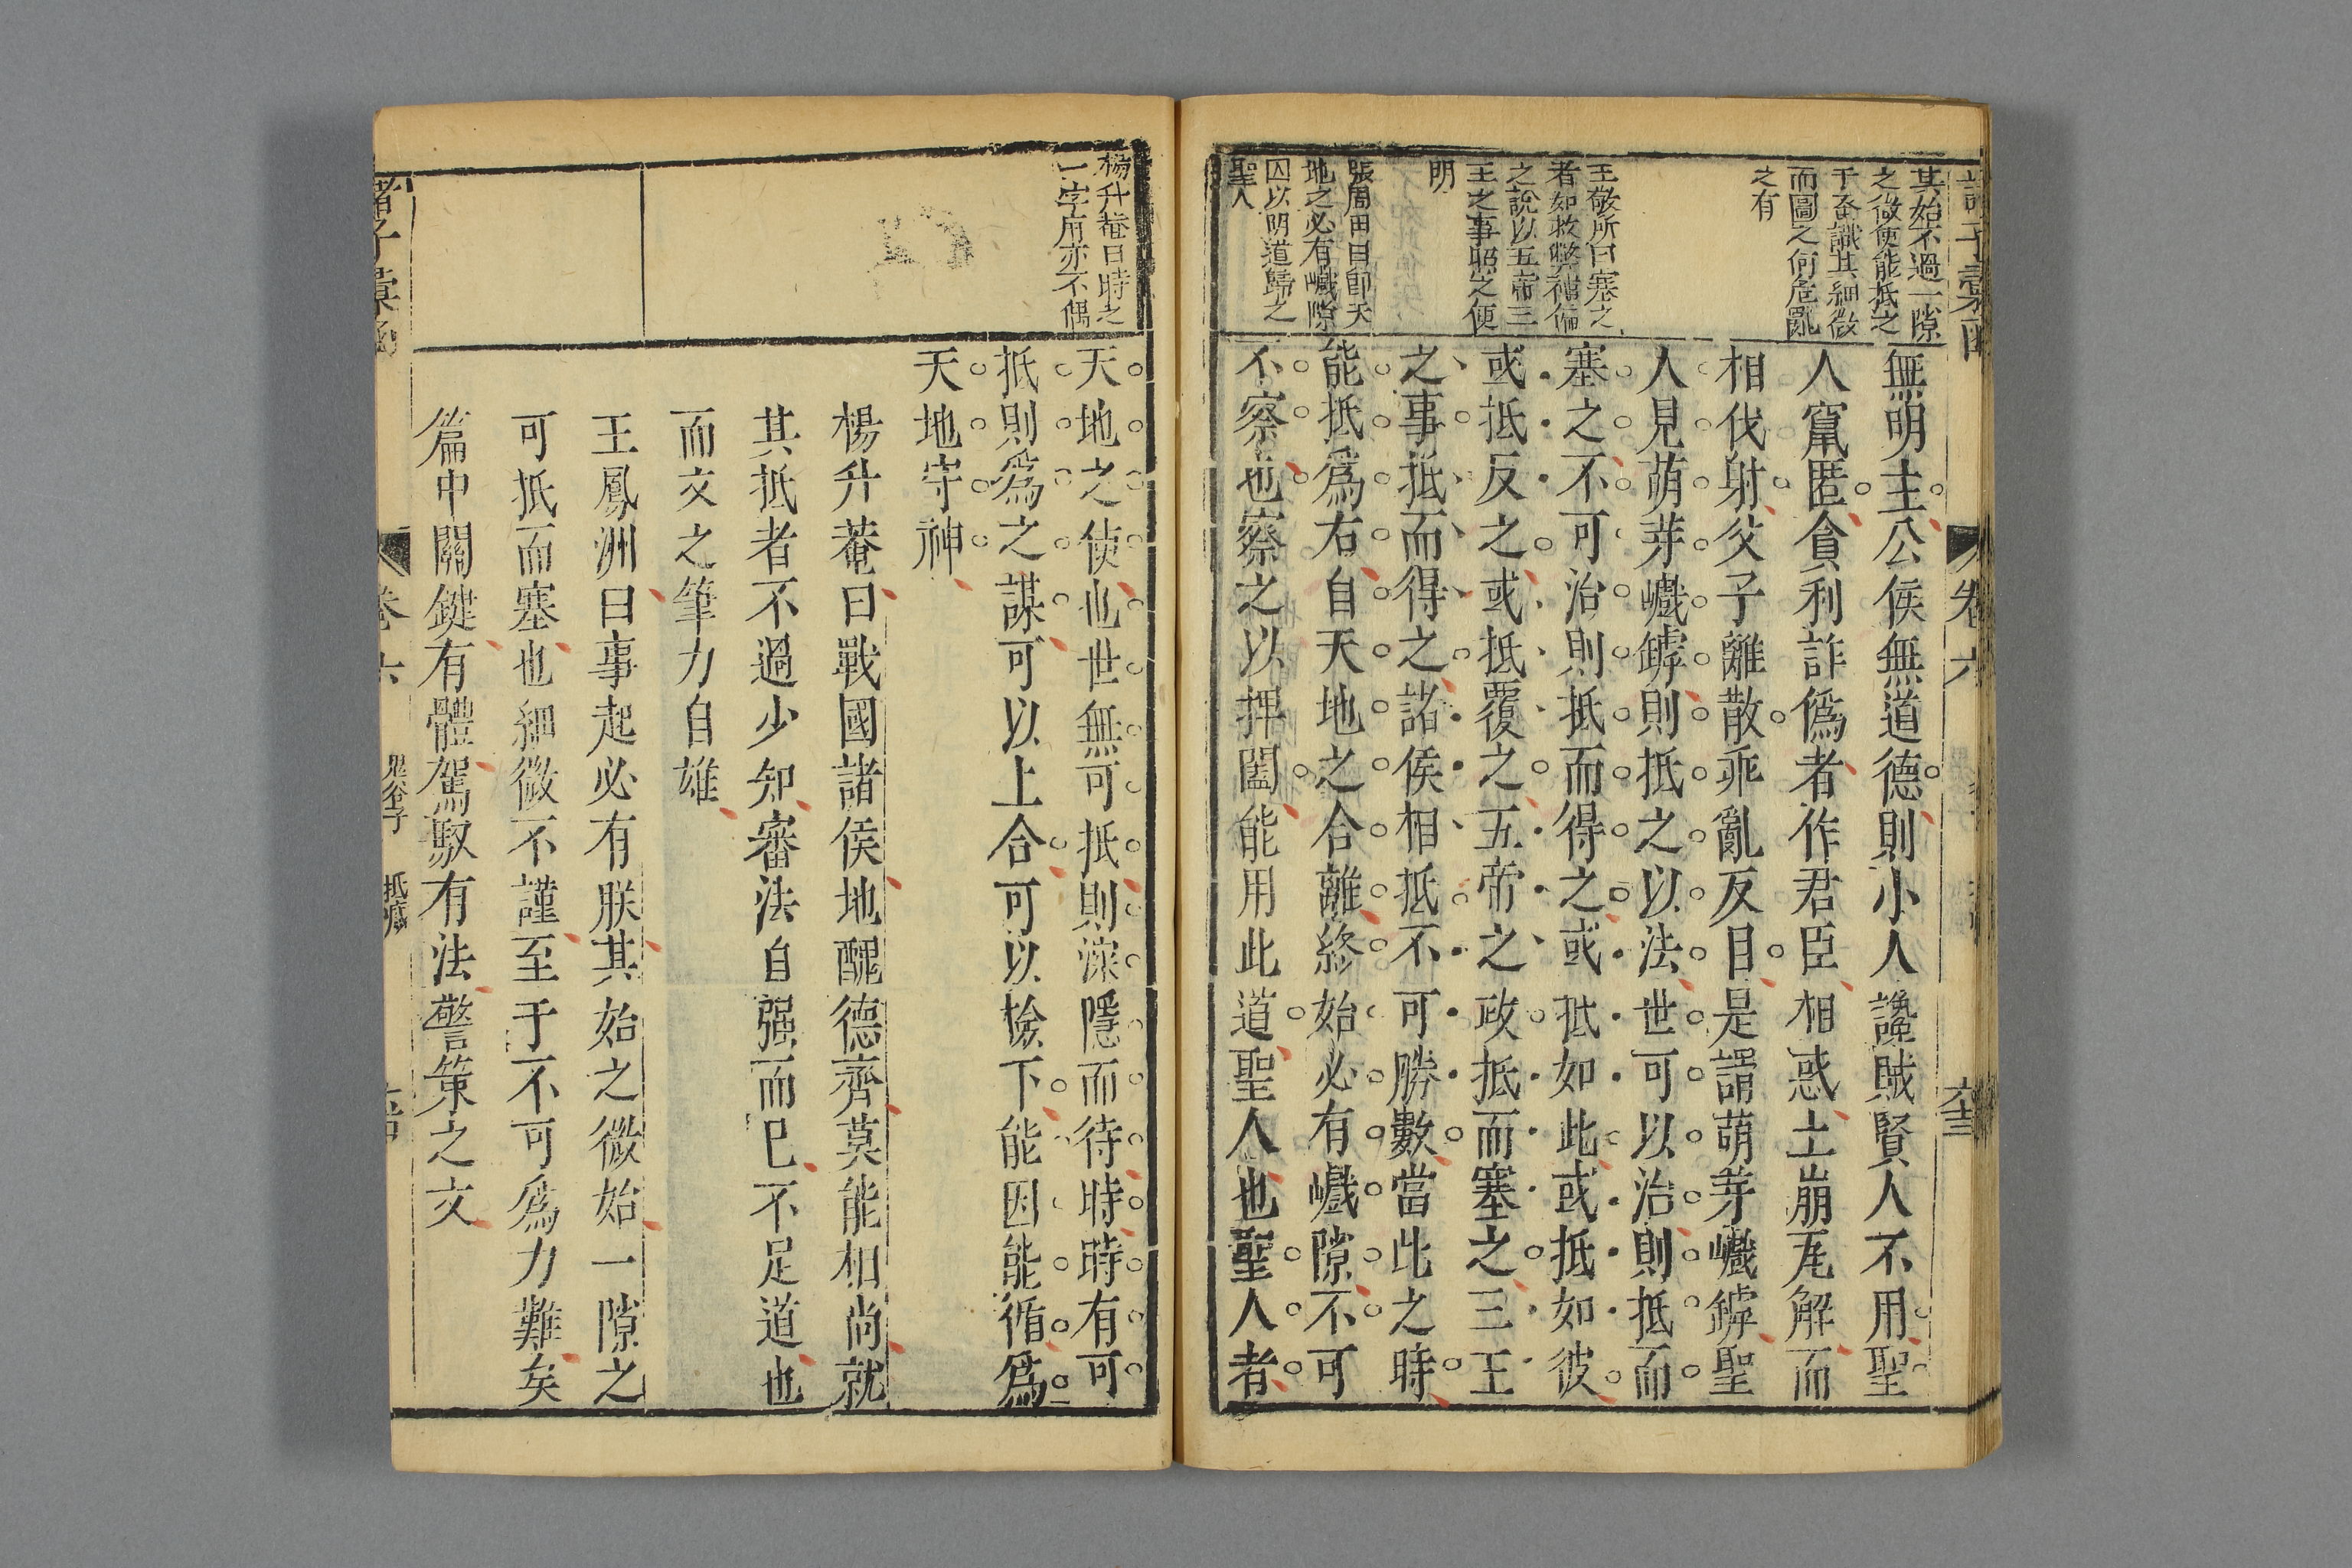 其始不過一隙
之微使能抵之
于蚤識其細微
而圖之何危亂
之有
王敬所曰塞之
者如救弊補偏
之說以五帝三
王之事照之便
明
張周田曰即天
地之必有巇隙
因以明道歸之
聖人
無明主公侯無道德則小人讒賊賢人不用聖
人竄匿貪利詐偽者作君臣相惑土崩瓦解而
相伐射父子離散乖亂反目是謂萌芽巇罅聖
人見萌芽巇罅則抵之以法世可以治則抵而
塞之不可治則抵而得之或抵如此或抵如彼
或抵反之或抵覆之五帝之政抵而塞之三王
之事抵而得之諸侯相抵不可勝數當此之時
能抵為右自天地之合離終始必有巇隙不可
不察也察之以捭闔能用此道聖人也聖人者
卷六
楊升菴曰時之
一字用亦不偶
天地之使也世無可抵則深隱而待時時有可
抵則為之謀可以上合可以檢下能因能循為
天地守神
楊升菴曰戰國諸侯地醜德齊莫能相尚就
其抵者不過少知審法自强而已不足道也
而文之筆力自雄
王鳳洲曰事起必有朕其始之微始一隙之
可抵而塞也細微不謹至于不可為力難矣
篇中關鍵有體駕馭有法警策之文
諸子彙函
卷六
鬼谷子
抵巇